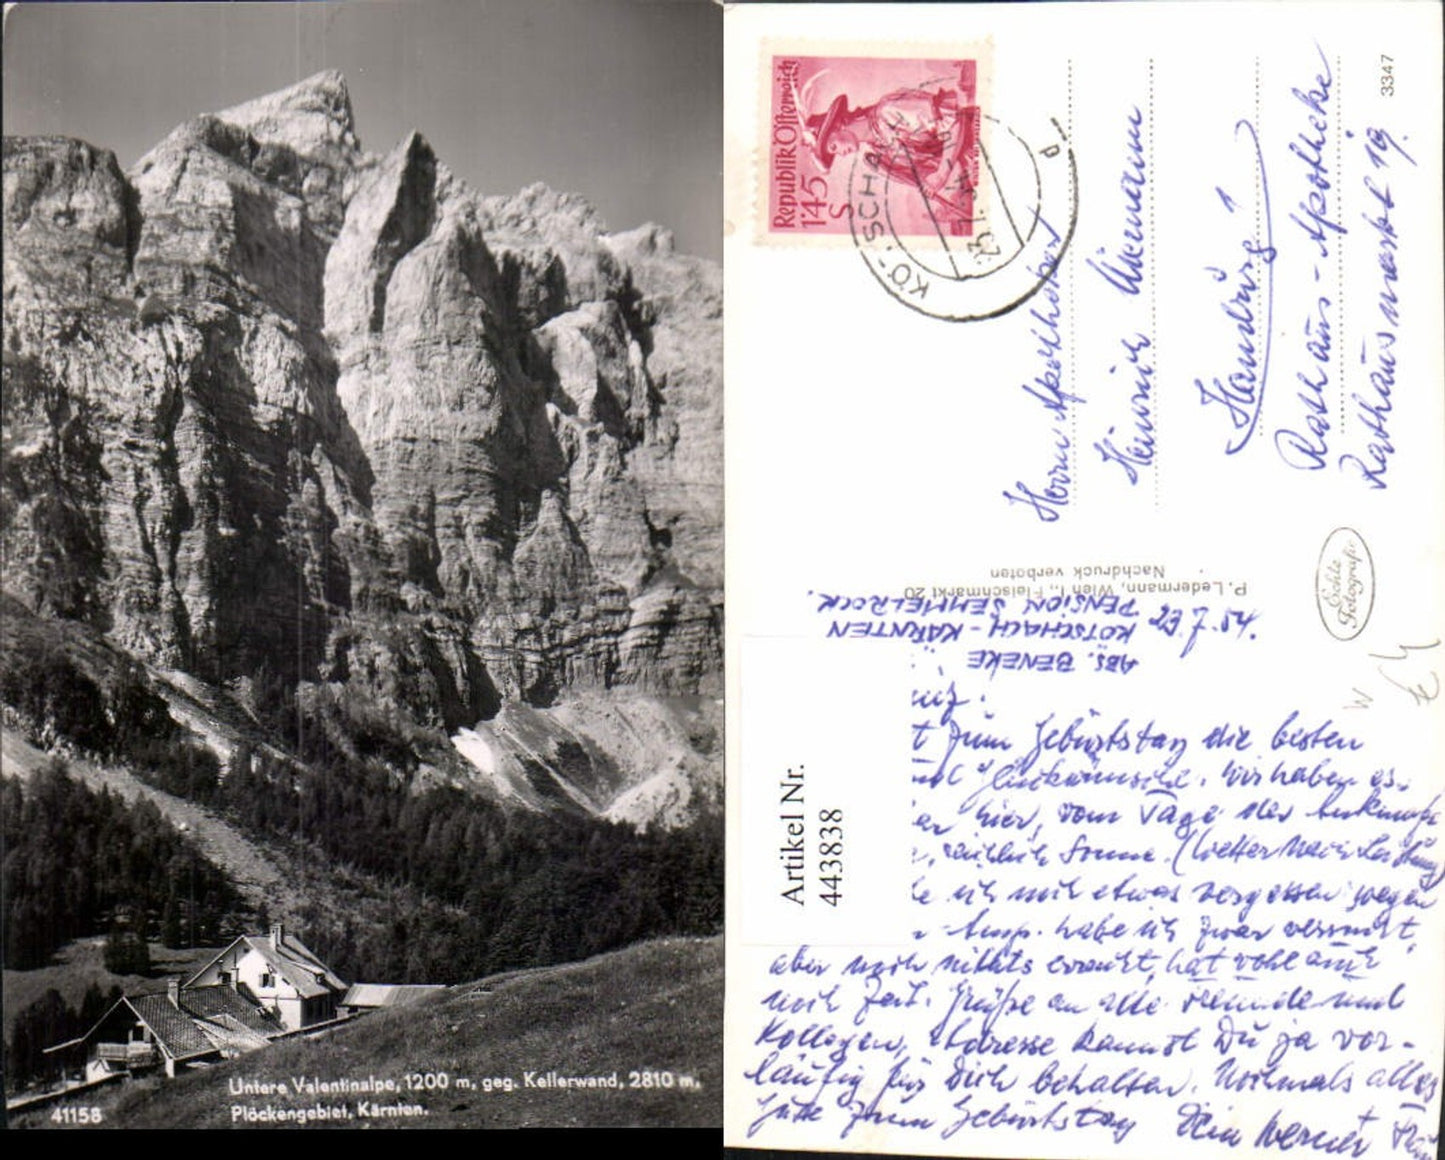 Untere Valentinalpe, 1200 m, geg. Kellerwand, 2810 m,
Plöckengebiet, Kärnten.
41158
Republik Österreich
1'45
S
KÖ
SCHA
Herrn Apotheker
Heinrich
Hamburg 1
Rathaus-Apotheke
Rathausmarkt 19.
3347
Echte
Fotografie
P. Ledermann, Wien I., Fleischmarkt 20
Nachdruck verboten
ABS. BENEKE
KÖTSCHACH-KÄRNTEN
PENSION SEMMELROCK.
Artikel Nr.
443838
zum Geburtstag die besten
Glückwünsche. Wir haben es
hier, vom Tage der Ankunft
Sonne. (Wetter
ich mich etwas vergessen wegen
habe ich zwar versucht,
aber noch nichts erreicht, hat wohl auch
noch Zeit. Grüße an alle Freunde und
Kollegen, Adresse kannst Du ja vor-
läufig für Dich behalten. Nochmals alles
Gute zum Geburtstag Dein Werner